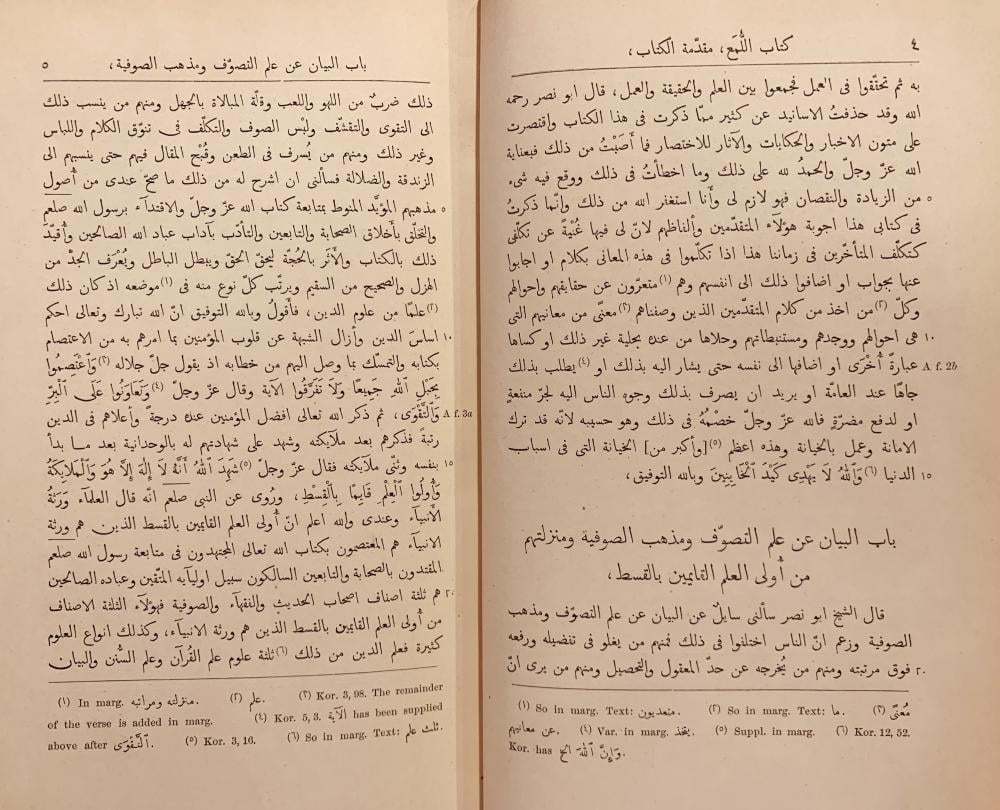 ٤ كتاب اللُّمَع، مقدّمة الكتاب،
به ثم تحقّقوا فى العمل فجمعوا بين العلم والحقيقة والعمل، قال ابو نصر رحمه
الله وقد حذفتُ الاسانيد عن كثير ممّا ذكرت فى هذا الكتاب واقتصرت
على متون الاخبار والحكايات والآثار للاختصار فما أَصَبْتُ من ذلك فبعناية
الله عزّ وجلّ والحمدُ لله على ذلك وما اخطأتُ فى ذلك ووقع فيه شىء
٥ من الزيادة والنقصان فهو لازم لى وأَنا استغفر الله من ذلك وإنّما ذكرتُ
فى كتابى هذا اجوبة هؤلآء المتقدّمين وألفاظهم لانّ لى فيها غُنْيةً عن تكلّفى
كتكلّف المتأخّرين فى زماننا هذا اذا تكلّموا فى هذه المعانى بكلام او اجابوا
عنها بجواب او اضافوا ذلك الى انفسهم وهم (١)متعرّون عن حقايقهم واحوالهم
وكلّ (٢)من اخذ من كلام المتقدّمين الذين وصفناهم (٣)معنًى من معانيهم التى
١٠ هى احوالهم ووجدهم ومستنبطاتهم وحلاها من عنده بحلية غير ذلك او كساها
A f. 2b عبارةً أُخْرَى او اضافها الى نفسه حتى يشار اليه بذلك او (٤)يطلب بذلك
جاهًا عند العامّة او يريد ان يصرف بذلك وجوه الناس اليه لجرّ منفعةٍ
او لدفع مضرّةٍ فالله عزّ وجلّ خصْمُهُ فى ذلك وهو حسيبه لانّه قد ترك
الامانة وعمل بالخيانة وهذه اعظم (٥)[وأكبر من] الخيانة التى فى اسباب
١٥ الدنيا (٦)وَٱللهُ لَا يَهْدِى كَيْدَ ٱلْخَايِنِينَ وبالله التوفيق،
باب البيان عن علم التصوّف ومذهب الصوفية ومنزلتهم
من أُولى العلم القايمين بالقسط،
قال الشيخ ابو نصر سألنى سايلٌ عن البيان عن علم التصوّف ومذهب
الصوفية وزعم انّ الناس اختلفوا فى ذلك فمنهم من يغلو فى تفضيله ورفعه
٢٠ فوق مرتبته ومنهم من يُخرجه عن حدّ المعقول والتحصيل ومنهم من يرى انّ
(١) So in marg. Text: متعديون. (٢) So in marg. Text: ما. (٣) مُعنّى
عن معانيهم. (٤) Var. in marg. يتّخذ. (٥) Suppl. in marg. (٦) Kor. 12, 52.
Kor. has وَإِنَّ ٱللهَ الخ.
باب البيان عن علم التصوّف ومذهب الصوفية، ٥
ذلك ضربٌ من اللهو واللعب وقلّة المبالاة بالجهل ومنهم من ينسب ذلك
الى التقوى والتقشّف ولبْس الصوف والتكلّف فى تنوّق الكلام واللباس
وغير ذلك ومنهم من يُسرف فى الطعن وقُبْح المقال فيهم حتى ينسبهم الى
الزندقة والضلالة فسألنى ان اشرح له من ذلك ما صحّ عندى من أُصول
٥ مذهبهم المؤيَّد المنوط بمتابعة كتاب الله عزّ وجلّ والاقتدآء برسول الله صلعم
والتخلّق بأخلاق الصحابة والتابعين والتأدّب بآداب عباد الله الصالحين وأُقيّدَ
ذلك بالكتاب والأَثَر بالحُجّة ليحقّ الحقّ ويبطل الباطل ويُعْرَف الجدّ من
الهزل والصحيح من السقيم ويرتّب كلّ نوع منه فى (١)موضعه اذ كان ذلك
(٢)علمًا من علوم الدين، فأقولُ وبالله التوفيق انّ الله تبارك وتعالى احكم
١٠ اساسَ الدين وأزال الشبهة عن قلوب المؤمنين بما امرهم به من الاعتصام
بكتابه والتمسّك بما وصل اليهم من خطابه اذ يقول جلّ جلاله (٣)وَٱعْتَصِمُوا
بِحَبْلِ ٱللهِ جَمِيعًا وَلَا تَفَرَّقُوا الآية وقال عزّ وجلّ (٤)وَتَعَاوَنُوا عَلَى ٱلْبِرِّ
A f. 3a وَٱلتَّقْوَى، ثم ذكر الله تعالى افضل المؤمنين عنده درجةً وأعلاهم فى الدين
رتبةً فذكرهم بعد ملآيكته وشهد على شهادتهم له بالوحدانية بعد ما بدأ
١٥ بنفسه وثنّى ملآيكته فقال عزّ وجلّ (٥)شَهِدَ ٱللهُ أَنَّهُ لَا إِلٰهَ إِلَّا هُوَ وَٱلْمَلَايِكَةُ
وَأُولُوا ٱلْعِلْمِ قَايِمًا بِٱلْقِسْطِ، ورُوى عن النبى صلعم انّه قال العلمآء وَرَثَةُ
الأَنبيآء وعندى والله اعلم انّ أُولى العلم القايمين بالقسط الذين هم ورثة
الانبيآء هم المعتصمون بكتاب الله تعالى المجتهدون فى متابعة رسول الله صلعم
المقتدون بالصحابة والتابعين السالكون سبيل اوليآيه المتّقين وعباده الصالحين
٢٠ هم ثلثة اصناف اصحاب الحديث والفقهآء والصوفية فهؤلآء الثلثة الاصناف
من أُولى العلم القايمين بالقسط الذين هم ورثة الانبيآء، وكذلك انواع العلوم
كثيرة فعلم الدين من ذلك (٦)ثلثة علوم علم القُرآن وعلم السُّنن والبيان
(١) In marg. منزلته ومراتبه. (٢) علم. (٣) Kor. 3, 98. The remainder
of the verse is added in marg. (٤) Kor. 5, 3. الآية has been supplied
above after ٱلتَّقْوَى. (٥) Kor. 3, 16. (٦) So in marg. Text: ثلث علم.